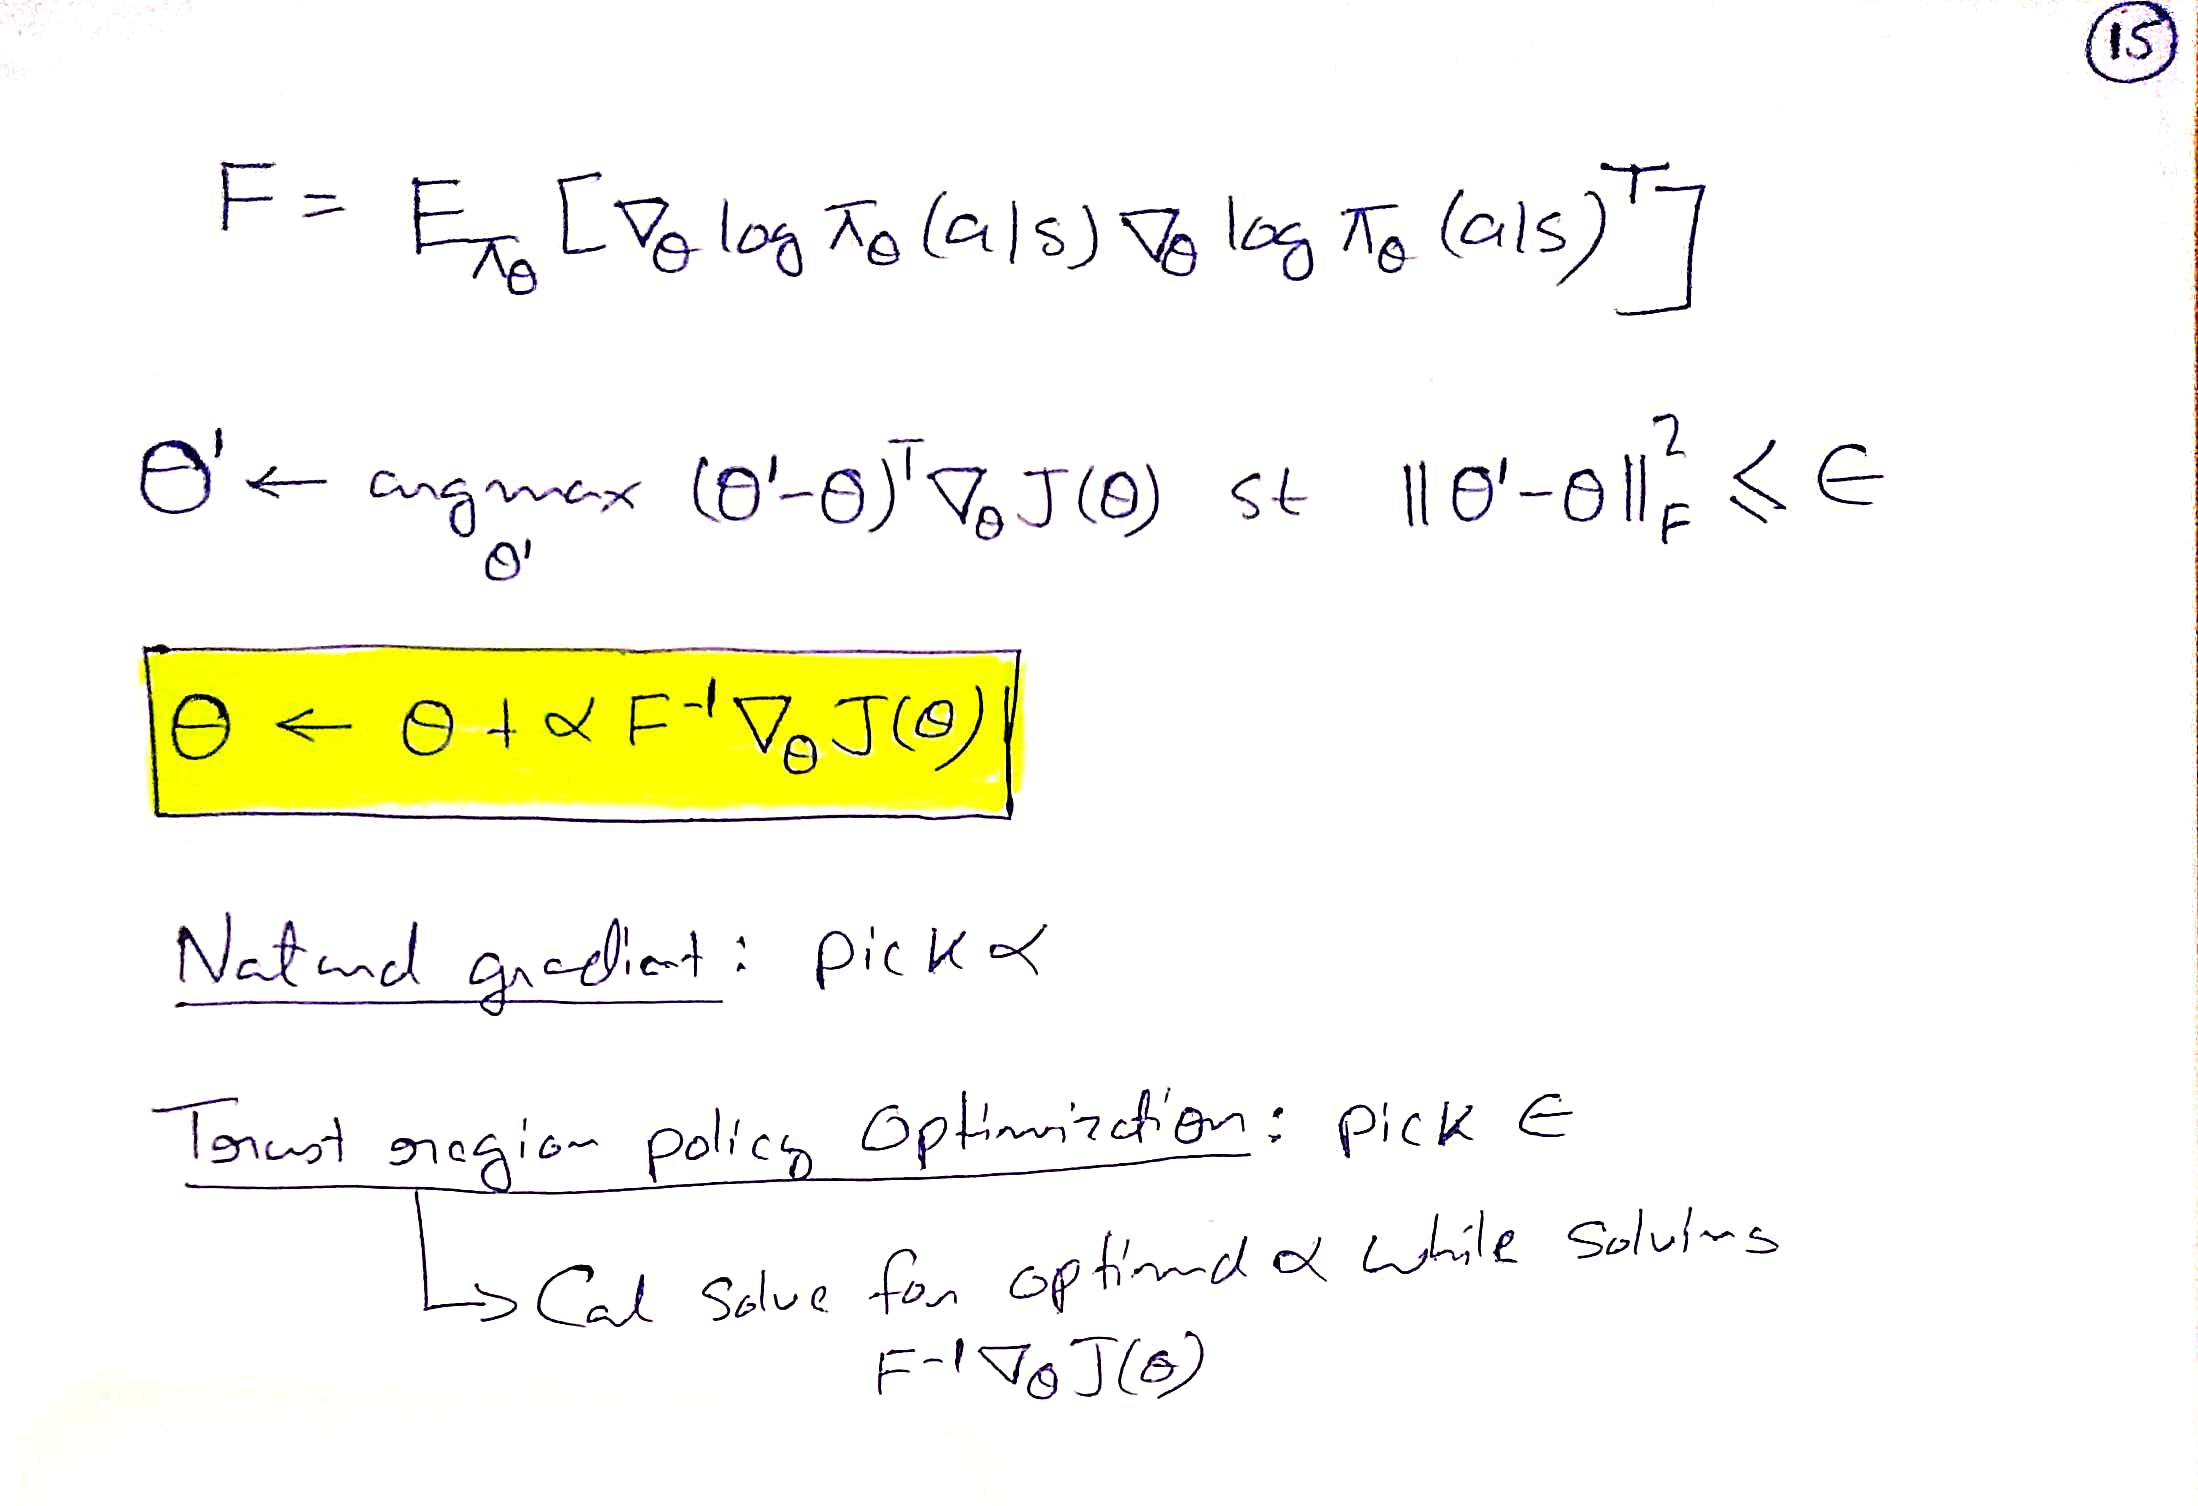 15
F = E_{π_θ} [∇_θ log π_θ (a|s) ∇_θ log π_θ (a|s)^T]
θ' ← argmax_{θ'} (θ'-θ)^T ∇_θ J(θ) st ||θ'-θ||²_F ≤ ∈
θ ← θ + α F^{-1} ∇_θ J(θ)
Natural gradient: pick α
Trust region policy optimization: pick ∈
↳ Cal solve for optimal α while solving
F^{-1} ∇_θ J(θ)